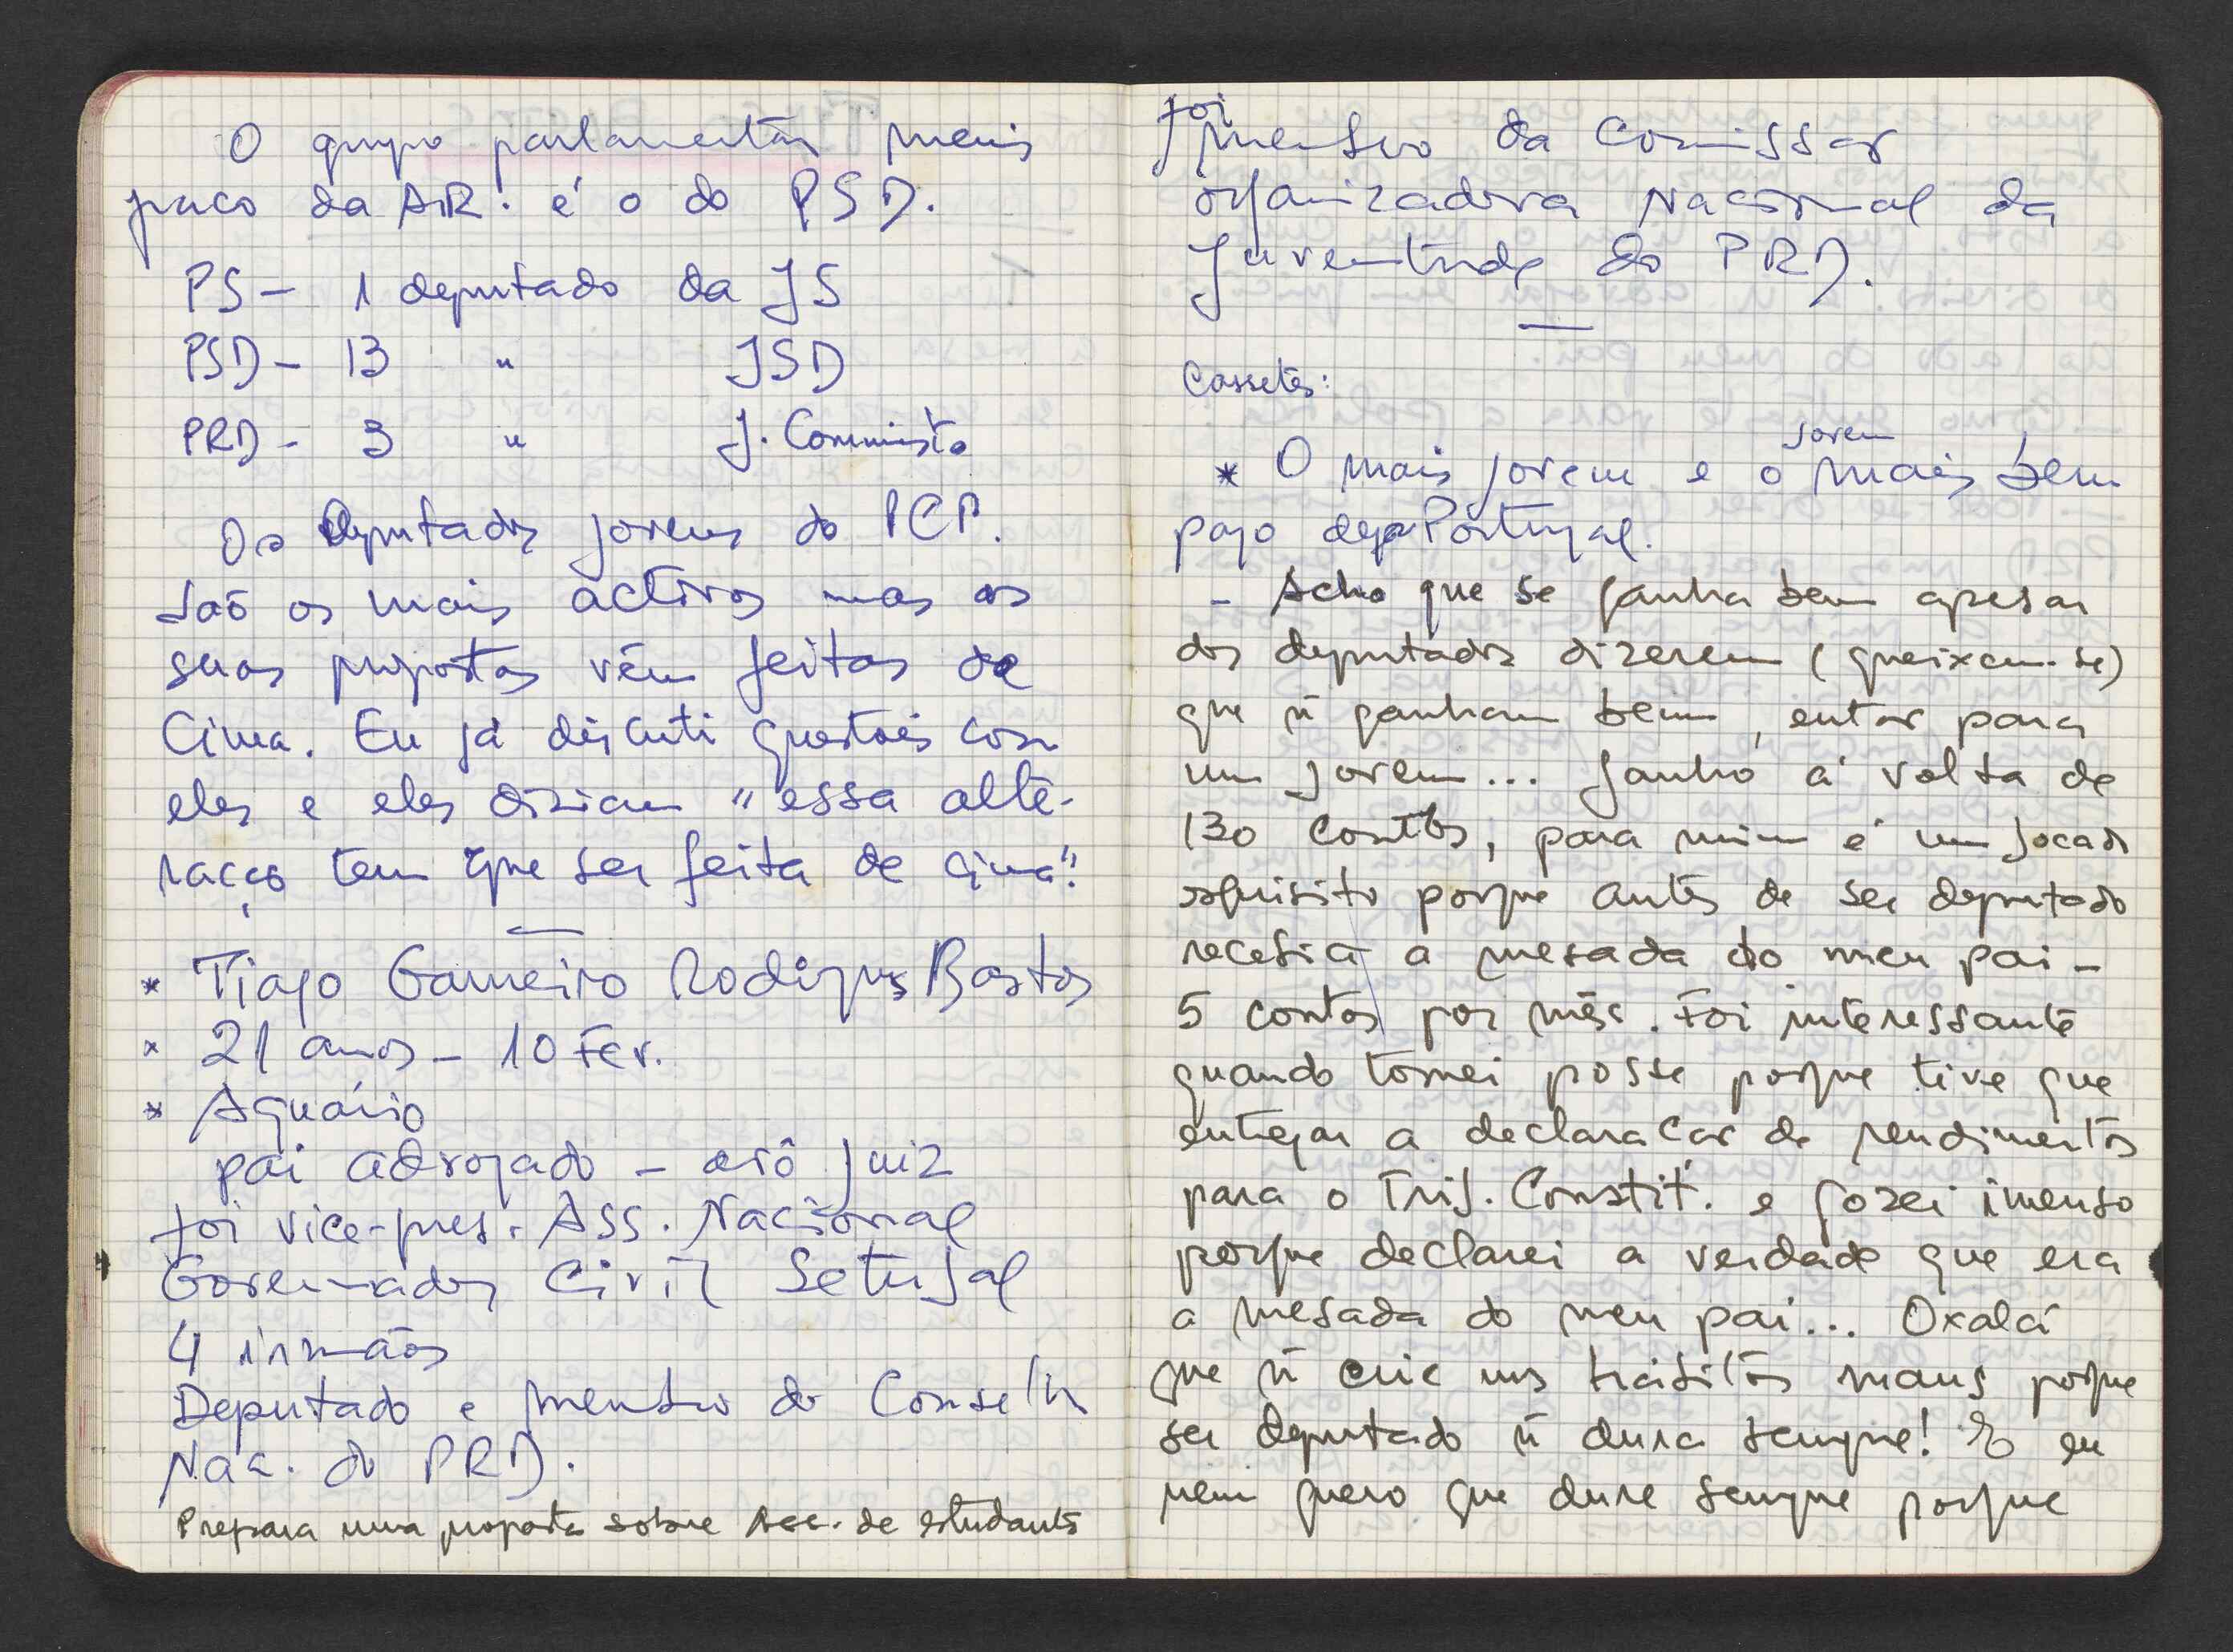 O grupo parlamentar mais
fraco da A.R. é o do PSD.
PS - 1 deputado da JS
PSD - 13 " JSD
PRD - 3 " J. Comunista
Os Deputados jovens do PCP.
são os mais activos mas as
suas propostas vêm feitas de
Cima. Eu já discuti questões com
eles e eles diziam "essa alte-
ração tem que ser feita de cima".
* Tiago Gameiro Rodrigues Bastos
* 21 anos - 10 Fev.
* Aquário
pai advogado - avô juiz
foi vice-pres. Ass. Nacional
Governador Civil Setubal
4 irmãos
Deputado e membro do Conselho
Nac. do PRD.
Prepara uma proposta sobre Ass. de estudantes
foi
membro da Comissão
organizadora Nacional da
Juventude do PRD.
Cassetes:
jovem
* O mais jovem e o mais bem
pago de Portugal.
- Acho que se ganha bem apesar
dos deputados dizerem (queixam-se)
que ñ ganham bem, então para
um jovem... Ganho á volta de
130 contos, para mim é um bocado
esquisito porque antes de ser deputado
recebia a mesada do meu pai -
5 contos por mês. Foi interessante
quando tomei posse porque tive que
entregar a declaração de rendimentos
para o Trib. Constit. e gozei imenso
porque declarei a verdade que era
a mesada do meu pai... Oxalá
que ñ crie uns hábitos maus porque
ser deputado ñ dura sempre! E eu
nem quero que dure sempre porque